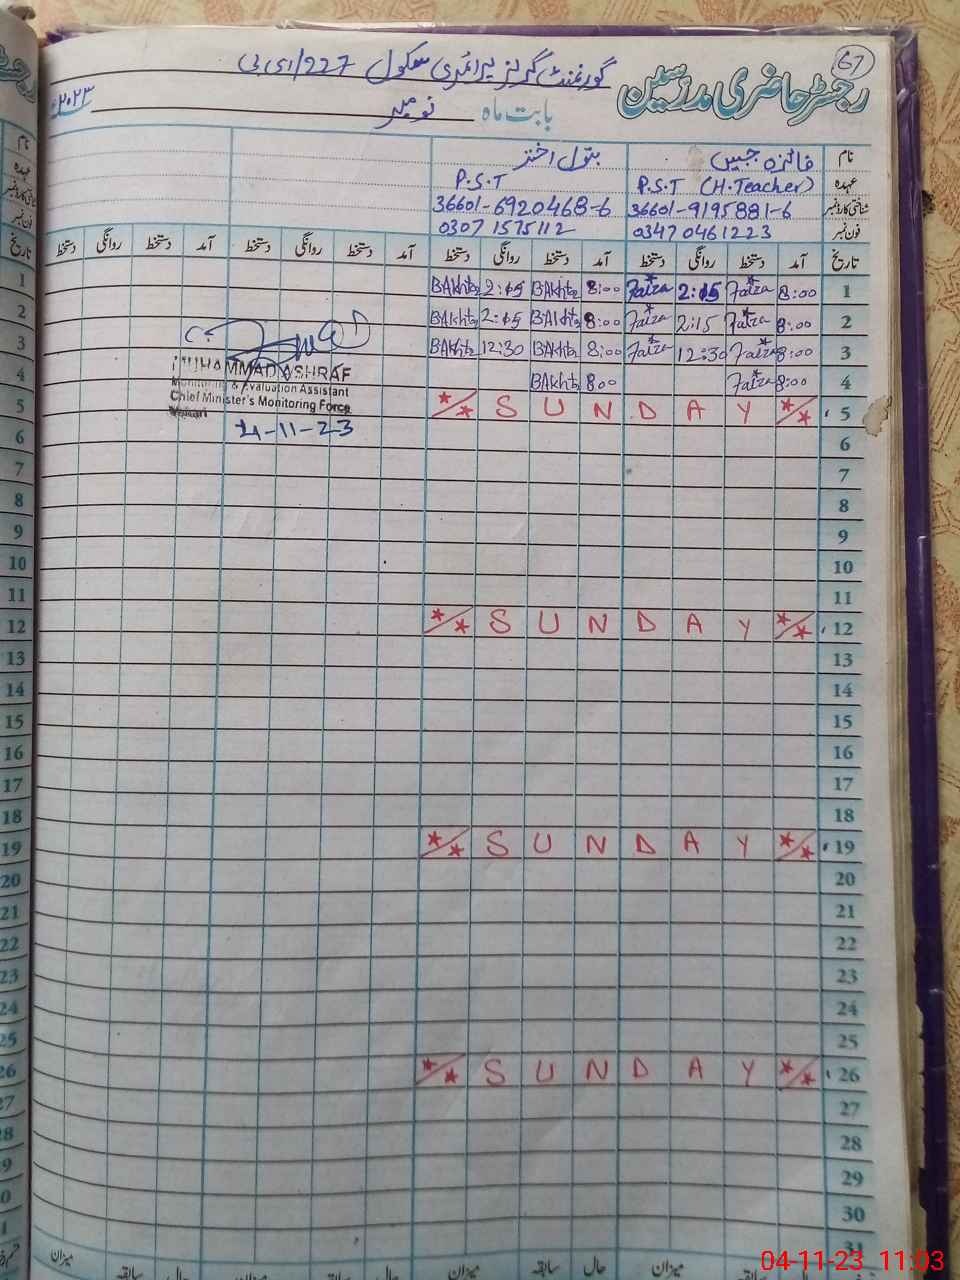 67
رجسٹر حاضری مدرسین
گورنمنٹ گرلز پرائمری سکول 227/ای بی
بابت ماہ نومبر ۲۰۲۳ء
نام فائزہ جبیں بتول اختر
عہدہ P.S.T (H.Teacher) P.S.T
شناختی کارڈ نمبر 36601-9195881-6 36601-6920468-6
فون نمبر 03470461223 03071575112
تاریخ آمد دستخط روانگی دستخط آمد دستخط روانگی دستخط آمد دستخط روانگی دستخط آمد دستخط روانگی دستخط
1 8:00 Faiza 2:15 Faiza 8:00 BAkhtr 2:15 BAkhtr
2 8:00 Faiza 2:15 Faiza 8:00 BAkhtr 2:15 BAkhtr
3 8:00 Faiza 12:30 Faiza 8:00 BAkhtr 12:30 BAkhtr
4 8:00 Faiza 8:00 BAkhtr
MUHAMMAD ASHRAF
Monitoring & Evaluation Assistant
Chief Minister's Monitoring Force
Vehari
4-11-23
5 SUNDAY
6
7
8
9
10
11
12 SUNDAY
13
14
15
16
17
18
19 SUNDAY
20
21
22
23
24
25
26 SUNDAY
27
28
29
30
31
میزان حال سابقہ میزان حال سابقہ میزان حال سابقہ میزان
04-11-23 11:03